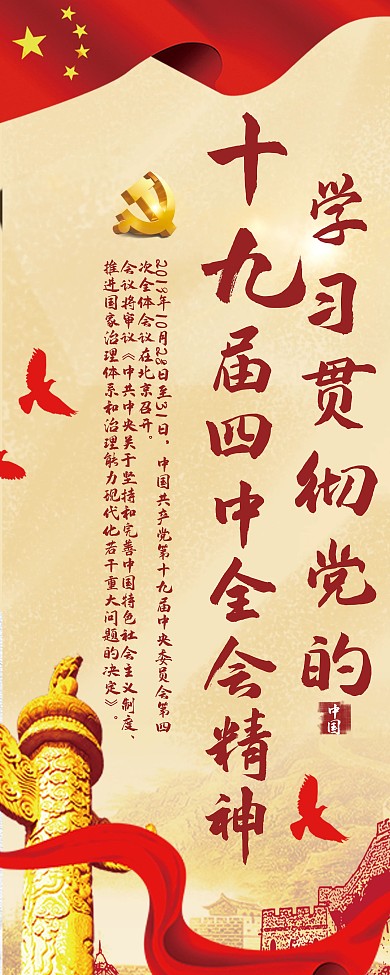 学习贯彻党的
十九届四中全会精神
中国
2019年10月28日至31日，中国共产党第十九届中央委员会第四
次全体会议在北京召开。
会议将审议《中共中央关于坚持和完善中国特色社会主义制度、
推进国家治理体系和治理能力现代化若干重大问题的决定》。